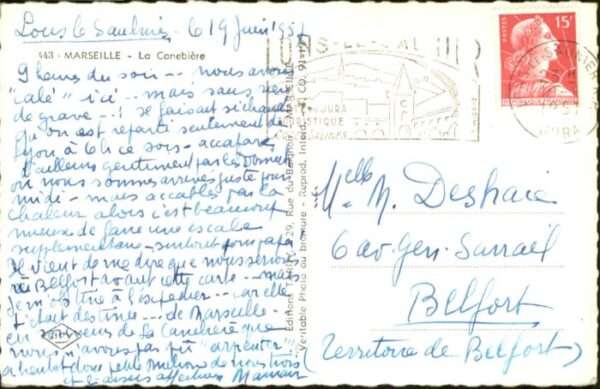 Lons le Saulnier 19 Juin 195
443 - MARSEILLE - La Canebière
9 heures du soir --- nous avons
"calé" ici -- mais sans rien
de grave --! il faisait si chaud
qu'on est reparti seulement de
Lyon à 6h ce soir - accaparés
d'ailleurs gentiment par les
où nous sommes arrivés juste pour
midi - mais accablés par la
chaleur alors c'est beaucoup
mieux de faire une escale
supplémentaire - surtout pour papa
Il vient de me dire que nous serions
à Belfort avant cette carte --- mais
je m'obstine à l'expédier -- car elle
était destinée --- de Marseille -
en de la Canebière que
nous n'avons pas pu "arpenter"
de nous trois
et les bises affectueuses Maman
Editions TARDY, 29, Rue du Bergeret, MARSEILLE
"Véritable Photo au bromure - Reprod. Interd.
JURA
TOURISTIQUE
POSTES
15F
JURA
Melle N. Deshaie
6 av. Gen. Sarrail
Belfort
(Territoire de Belfort)